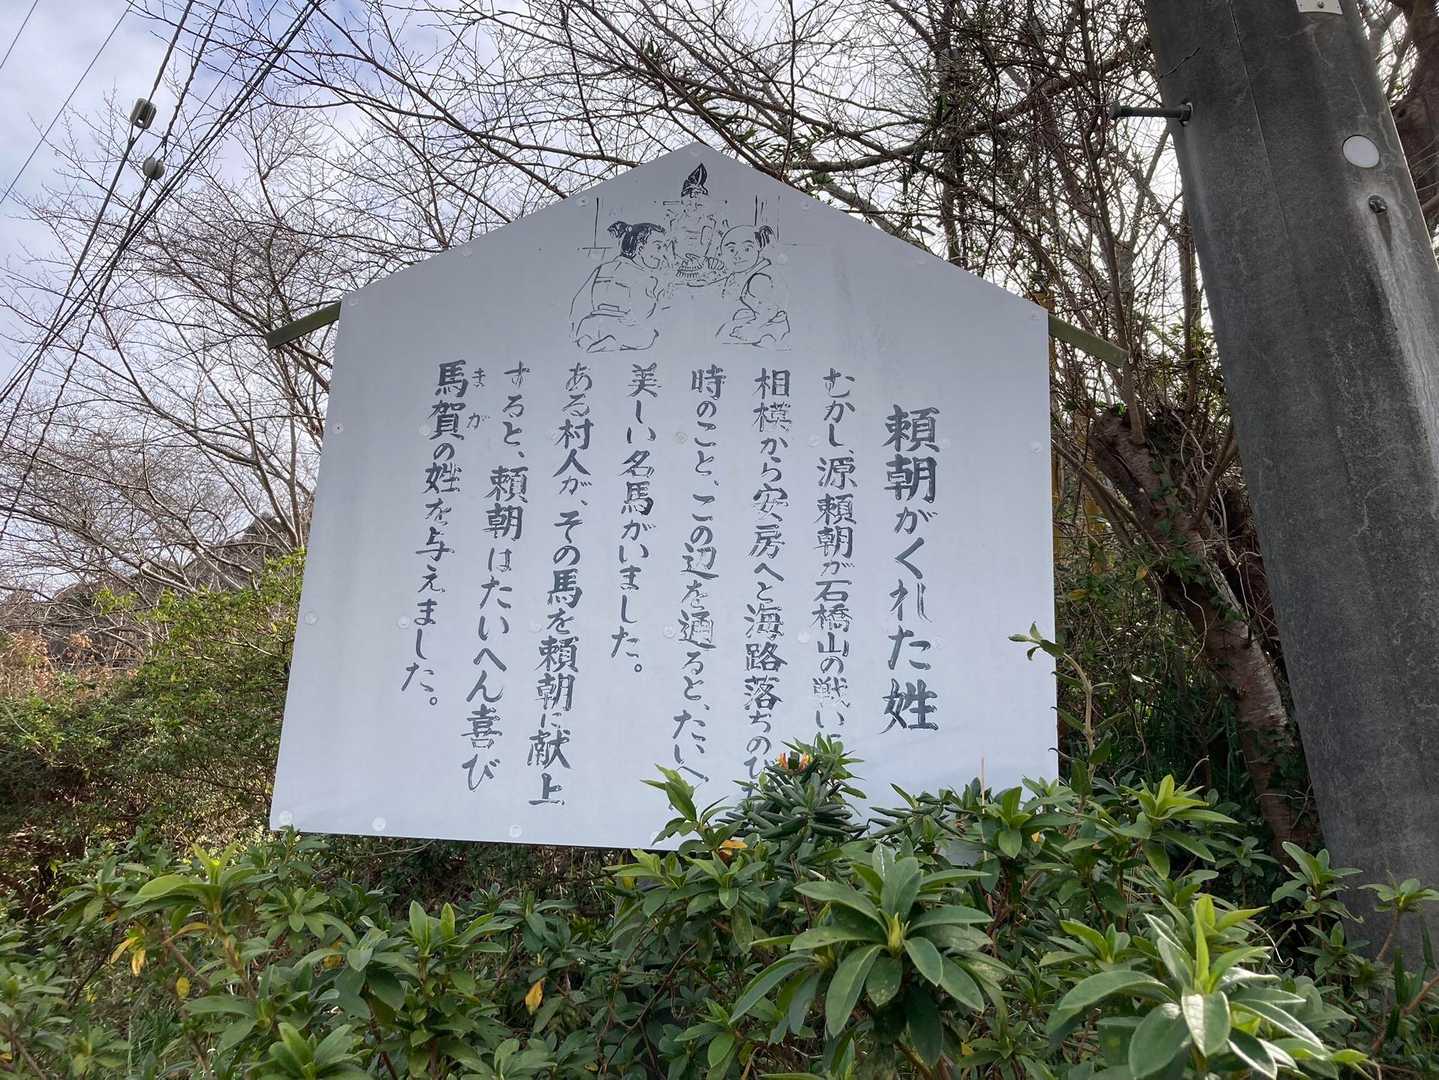 頼朝がくれた姓
むかし、源頼朝が石橋山の戦いに
相模から安房へと海路落ちのび
時のこと、この辺を通ると、たいへ
美しい名馬がいました。
ある村人が、その馬を頼朝に献上
すると、頼朝はたいへん喜び
馬賀の姓を与えました。
まが